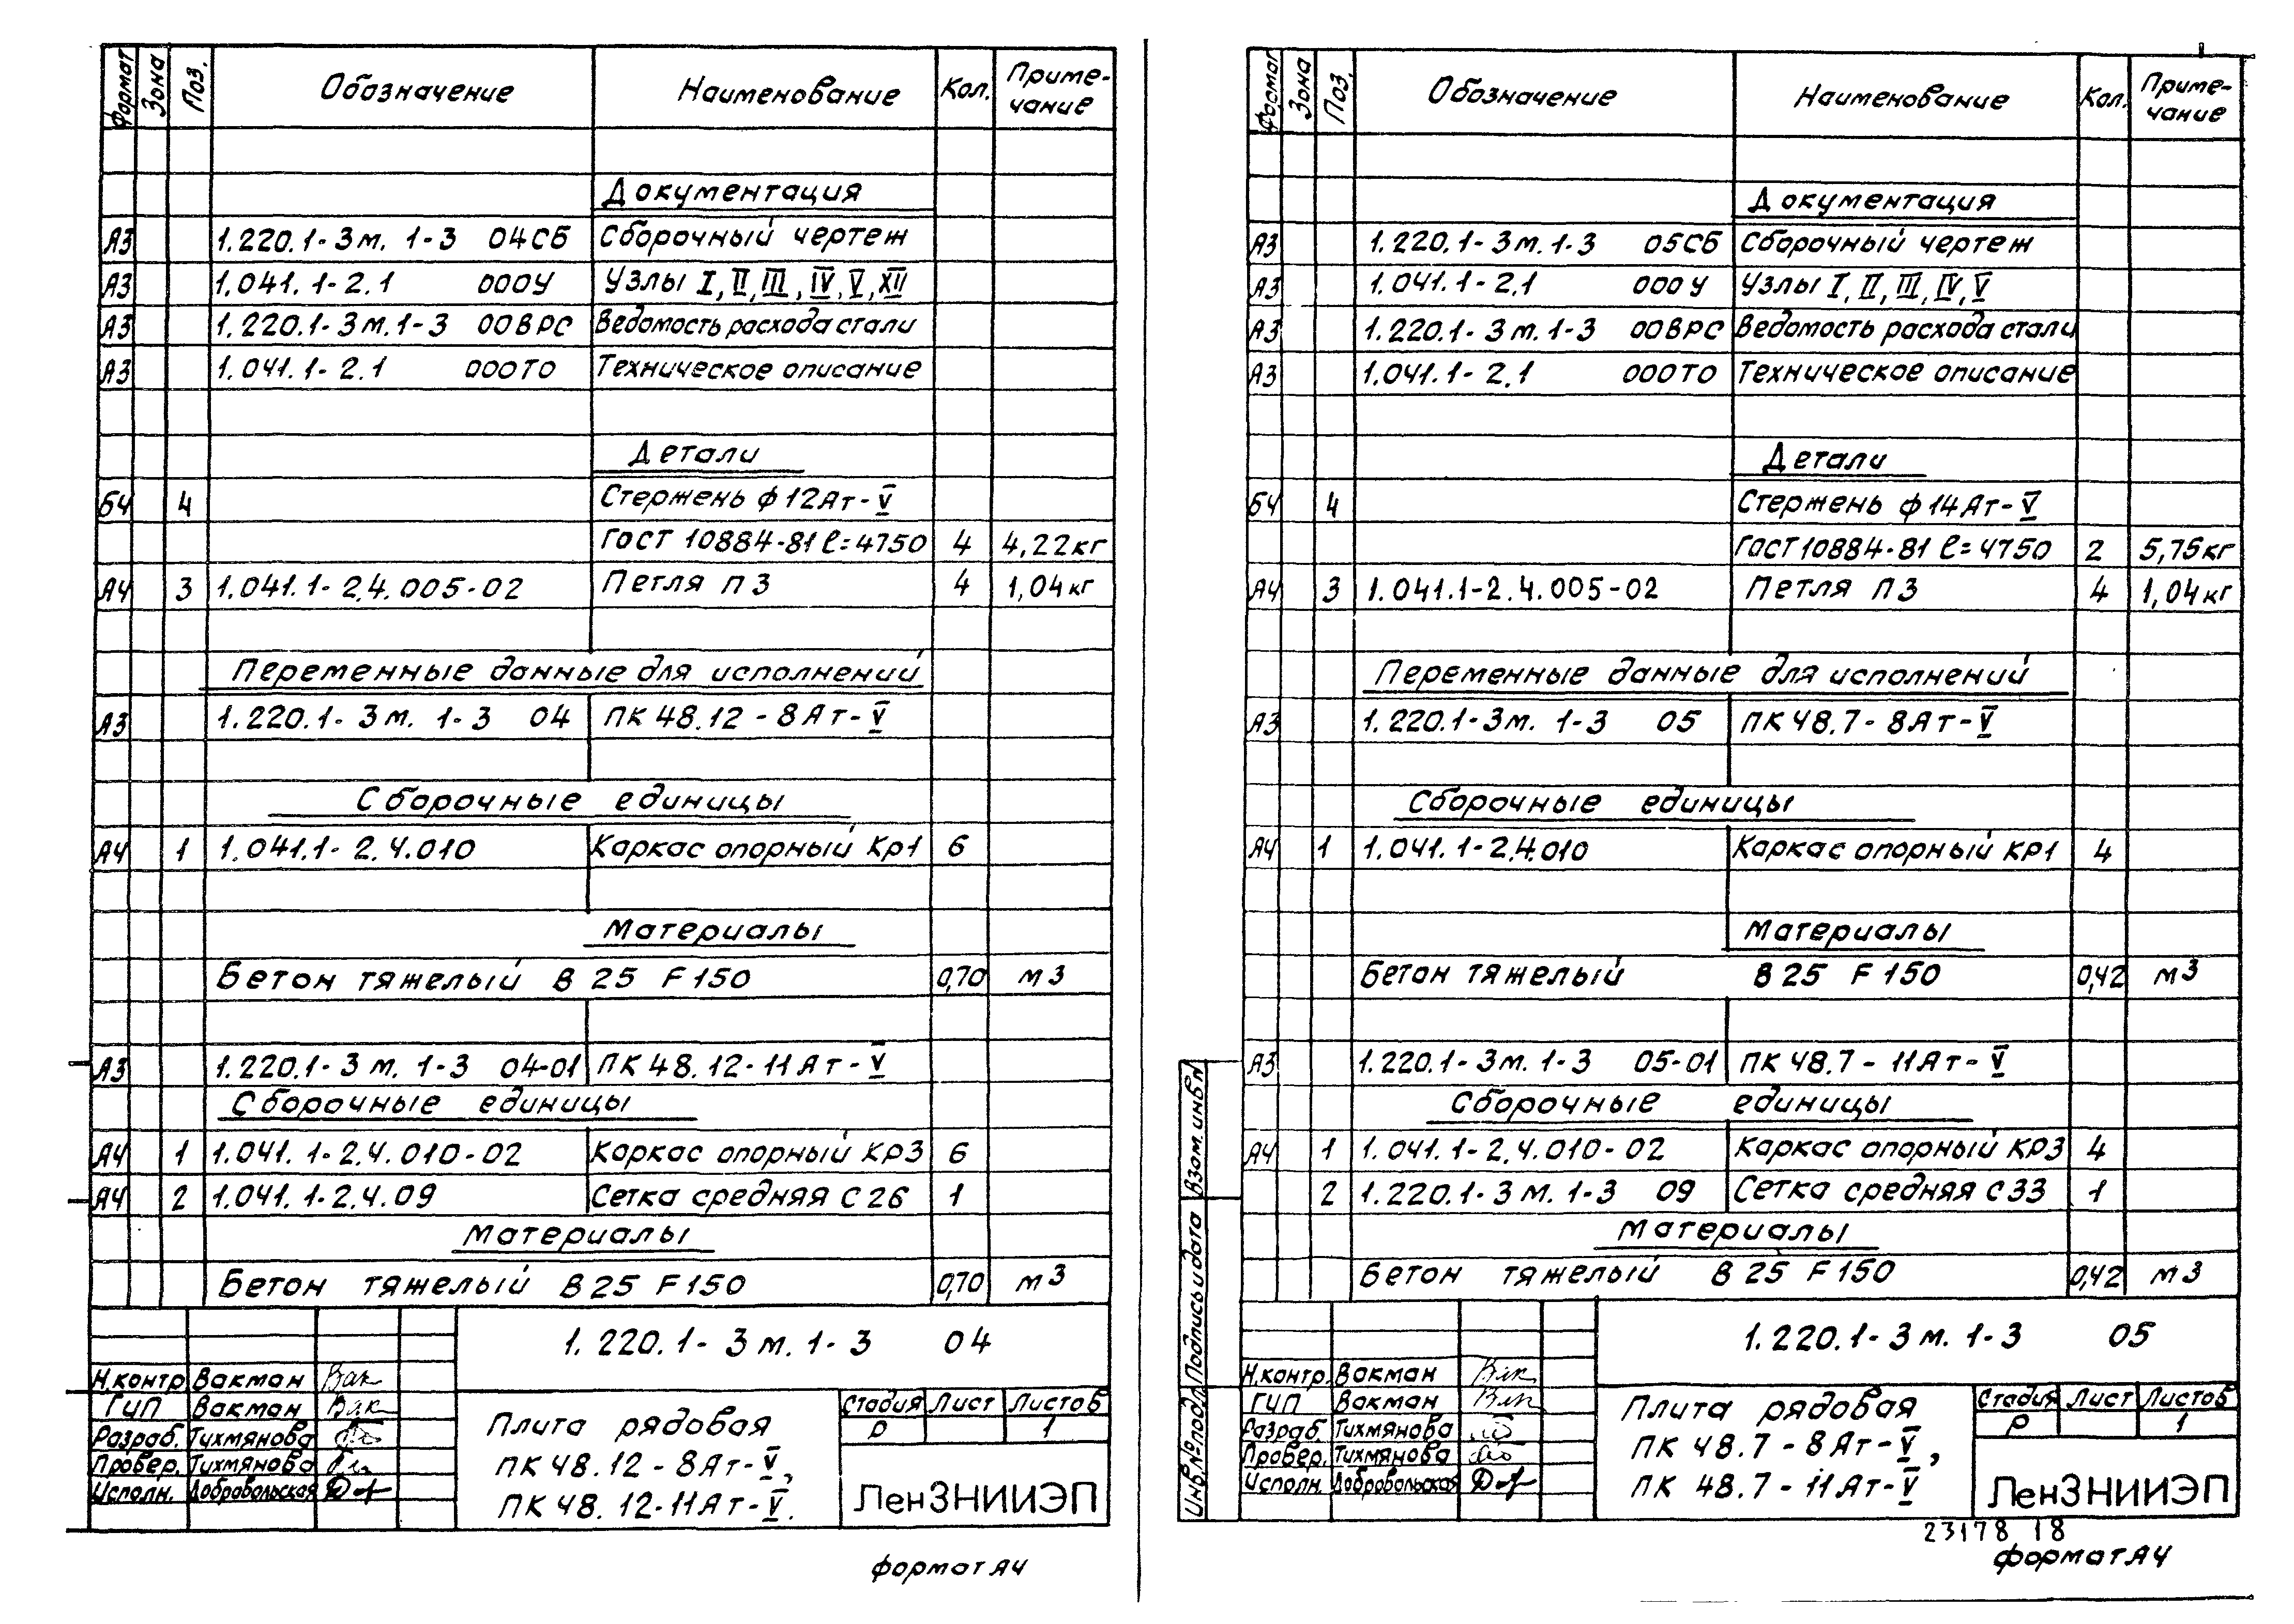 Формат Зона Поз. Обозначение Наименование Кол. Приме-
чание
Документация
А3 1.220.1-3м. 1-3 04СБ Сборочный чертеж
А3 1.041.1-2.1 000У Узлы I, II, III, IV, V, XII
А3 1.220.1-3м.1-3 00ВРС Ведомость расхода стали
А3 1.041.1-2.1 000ТО Техническое описание
Детали
БЧ 4 Стержень ф12Ат-V
ГОСТ 10884-81 ℓ=4750 4 4,22кг
А4 3 1.041.1-2.4.005-02 Петля П3 4 1,04кг
Переменные данные для исполнений
А3 1.220.1-3м. 1-3 04 ПК 48.12-8Ат-V
Сборочные единицы
А4 1 1.041.1-2.4.010 Каркас опорный Кр1 6
Материалы
Бетон тяжелый В25 F150 0,70 м3
А3 1.220.1-3м. 1-3 04-01 ПК 48.12-11Ат-V
Сборочные единицы
А4 1 1.041.1-2.4.010-02 Каркас опорный КР3 6
А4 2 1.041.1-2.4.09 Сетка средняя С26 1
Материалы
Бетон тяжелый В25 F150 0,70 м3
1.220.1-3м.1-3 04
Н.контр. Вакман Вак
ГИП Вакман Вак
Разраб. Тихмянова
Провер. Тихмянова
Исполн. Добровольская
Плита рядовая
ПК 48.12-8Ат-V,
ПК 48.12-11Ат-V.
Стадия Лист Листов
Р 1
ЛенЗНИИЭП
формат А4
Формат Зона Поз. Обозначение Наименование Кол. Приме-
чание
Документация
А3 1.220.1-3м.1-3 05СБ Сборочный чертеж
А3 1.041.1-2.1 000У Узлы I, II, III, IV, V
А3 1.220.1-3м.1-3 00ВРС Ведомость расхода стали
А3 1.041.1-2.1 000ТО Техническое описание
Детали
БЧ 4 Стержень ф14Ат-V
ГОСТ 10884-81 ℓ=4750 2 5,75кг
А4 3 1.041.1-2.4.005-02 Петля П3 4 1,04кг
Переменные данные для исполнений
А3 1.220.1-3м. 1-3 05 ПК 48.7-8Ат-V
Сборочные единицы
А4 1 1.041.1-2.4.010 Каркас опорный КР1 4
Материалы
Бетон тяжелый В25 F150 0,42 м3
А3 1.220.1-3м. 1-3 05-01 ПК 48.7-11Ат-V
Сборочные единицы
А4 1 1.041.1-2.4.010-02 Каркас опорный КР3 4
2 1.220.1-3м.1-3 09 Сетка средняя С33 1
Материалы
Бетон тяжелый В25 F150 0,42 м3
Инв.№подл. Подпись и дата Взам.инв.№
1.220.1-3м.1-3 05
Н.контр. Вакман Вак
ГИП Вакман Вак
Разраб. Тихмянова
Провер. Тихмянова
Исполн. Добровольская
Плита рядовая
ПК 48.7-8Ат-V,
ПК 48.7-11Ат-V
Стадия Лист Листов
Р 1
ЛенЗНИИЭП
23178 18
формат А4